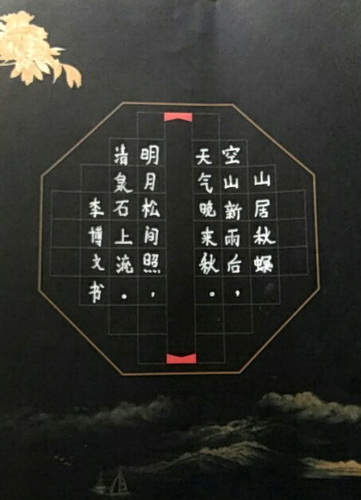 山居秋螟
空山新雨后，
天气晚来秋。
明月松间照，
清泉石上流。
李博文书